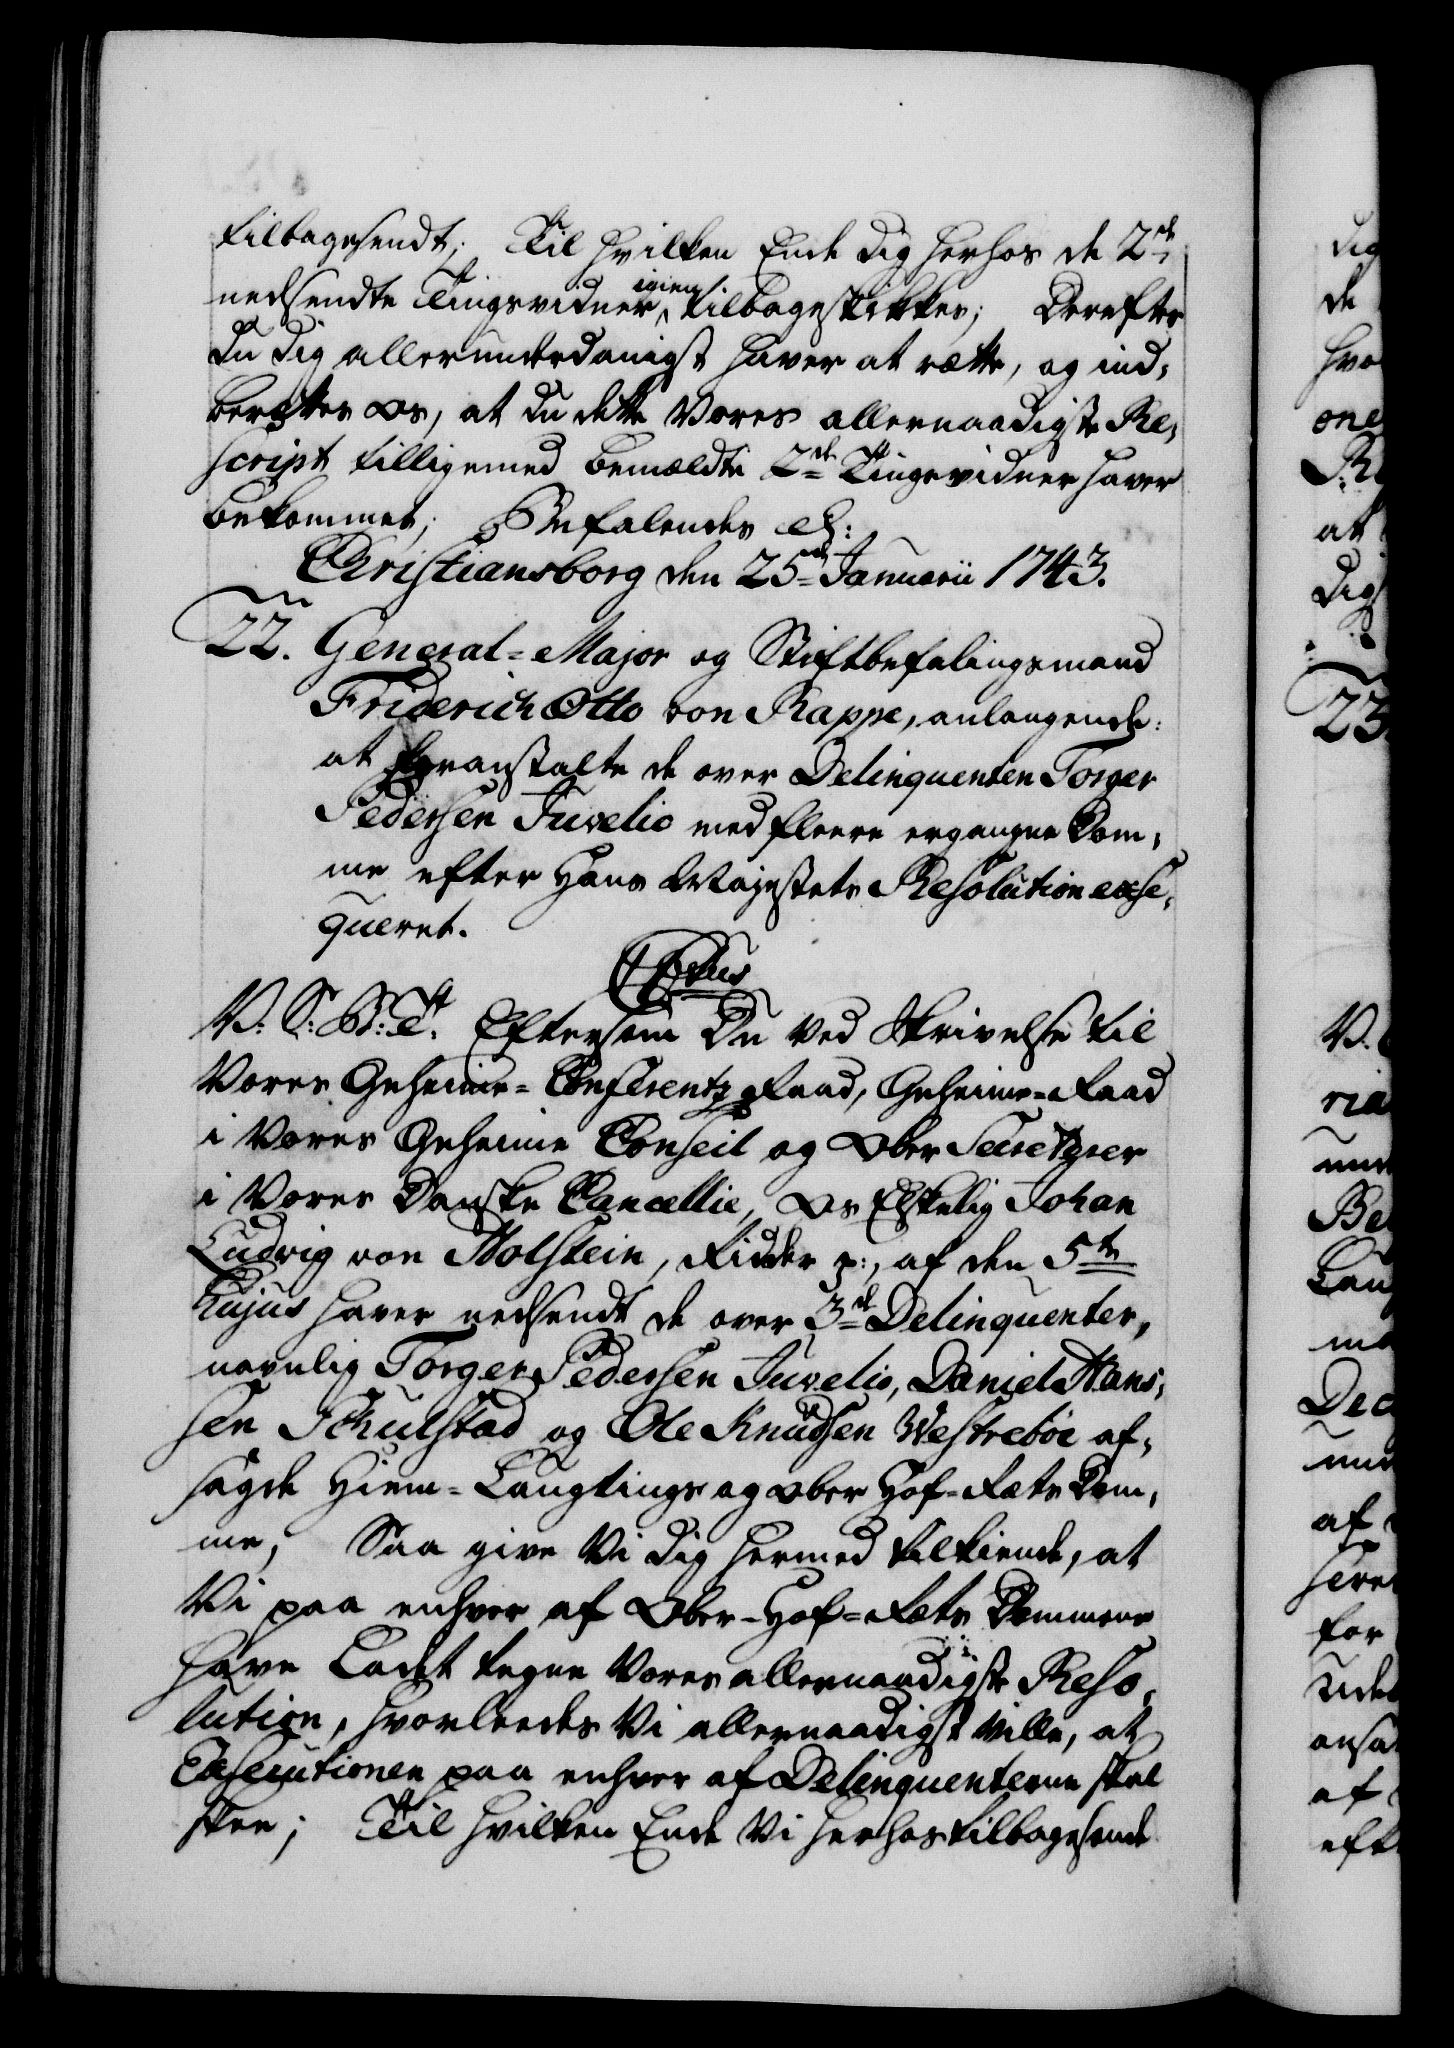 tilbagesendt; Til hvilken Ende dig herhos de 2de
nedsendte Tingsvidner igien tilbageskikkes; Derefter
du dig allerunderdanigst haver at rette, og ind-
berette os, at du dette Vores allernaadigste Re-
script tilligemed bemældte 2de Tingsvidner haver
bekommet; Befalendes etc:
Christiansborg den 25de Januarii 1743.
22. General-Major og Stiftbefalingsmand
Friderich Otto von Rappe, anlangende:
at foranstalte de over Delinquenten Torger
Pedersen Juvelio med fleere ergangne Dom-
me efter Hans Mayestets Resolution exse-
queret.
C 6tus
V: S: B: T: Eftersom Du ved Skrivelse til
Vores Geheime-Conferentz Raad, Geheime-Raad
i Vores Geheime Conseil og Ober Secreterer
i Vores Danske Cancellie, Os Elskelig Johan
Ludvig von Holstein, Ridder p:, af den 5te
hujus haver nedsendt de over 3de Delinquenter,
navnlig Torger Pedersen Juvelio, Daniel Hans-
sen Schulstad og Ole Knudsen Westrebøe af-
sagde Hiem- Laugtings og Ober Hof-Rets Dom-
me, Saa give Vi dig hermed tilkiende, at
Vi paa enhver af Ober-Hof-Rets Dommene
have ladet tegne Vores allernaadigste Reso-
lution, hvorledes Vi allernaadigst ville, at
Exsecutionen paa enhver af Delinquenterne skal
skee; Til hvilken Ende Vi herhos tilbagesende